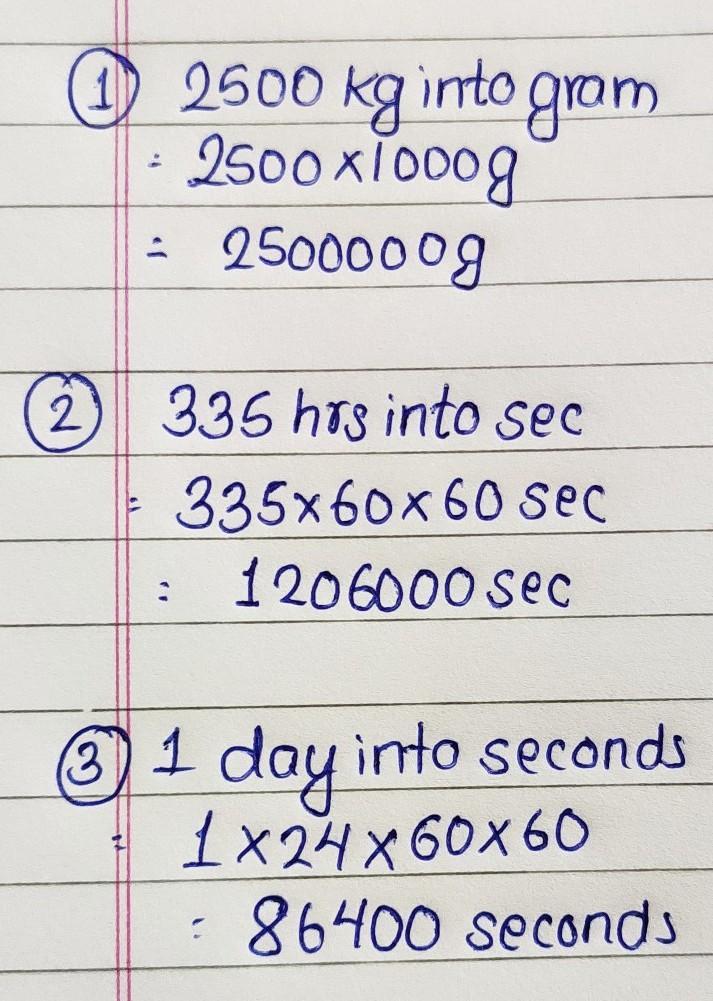 ① 2500 kg into gram
= 2500 x 1000g
= 2500000g
② 335 hrs into sec
= 335x60x60 sec
= 1206000 sec
③ 1 day into seconds
= 1 x 24 x 60 x 60
= 86400 seconds